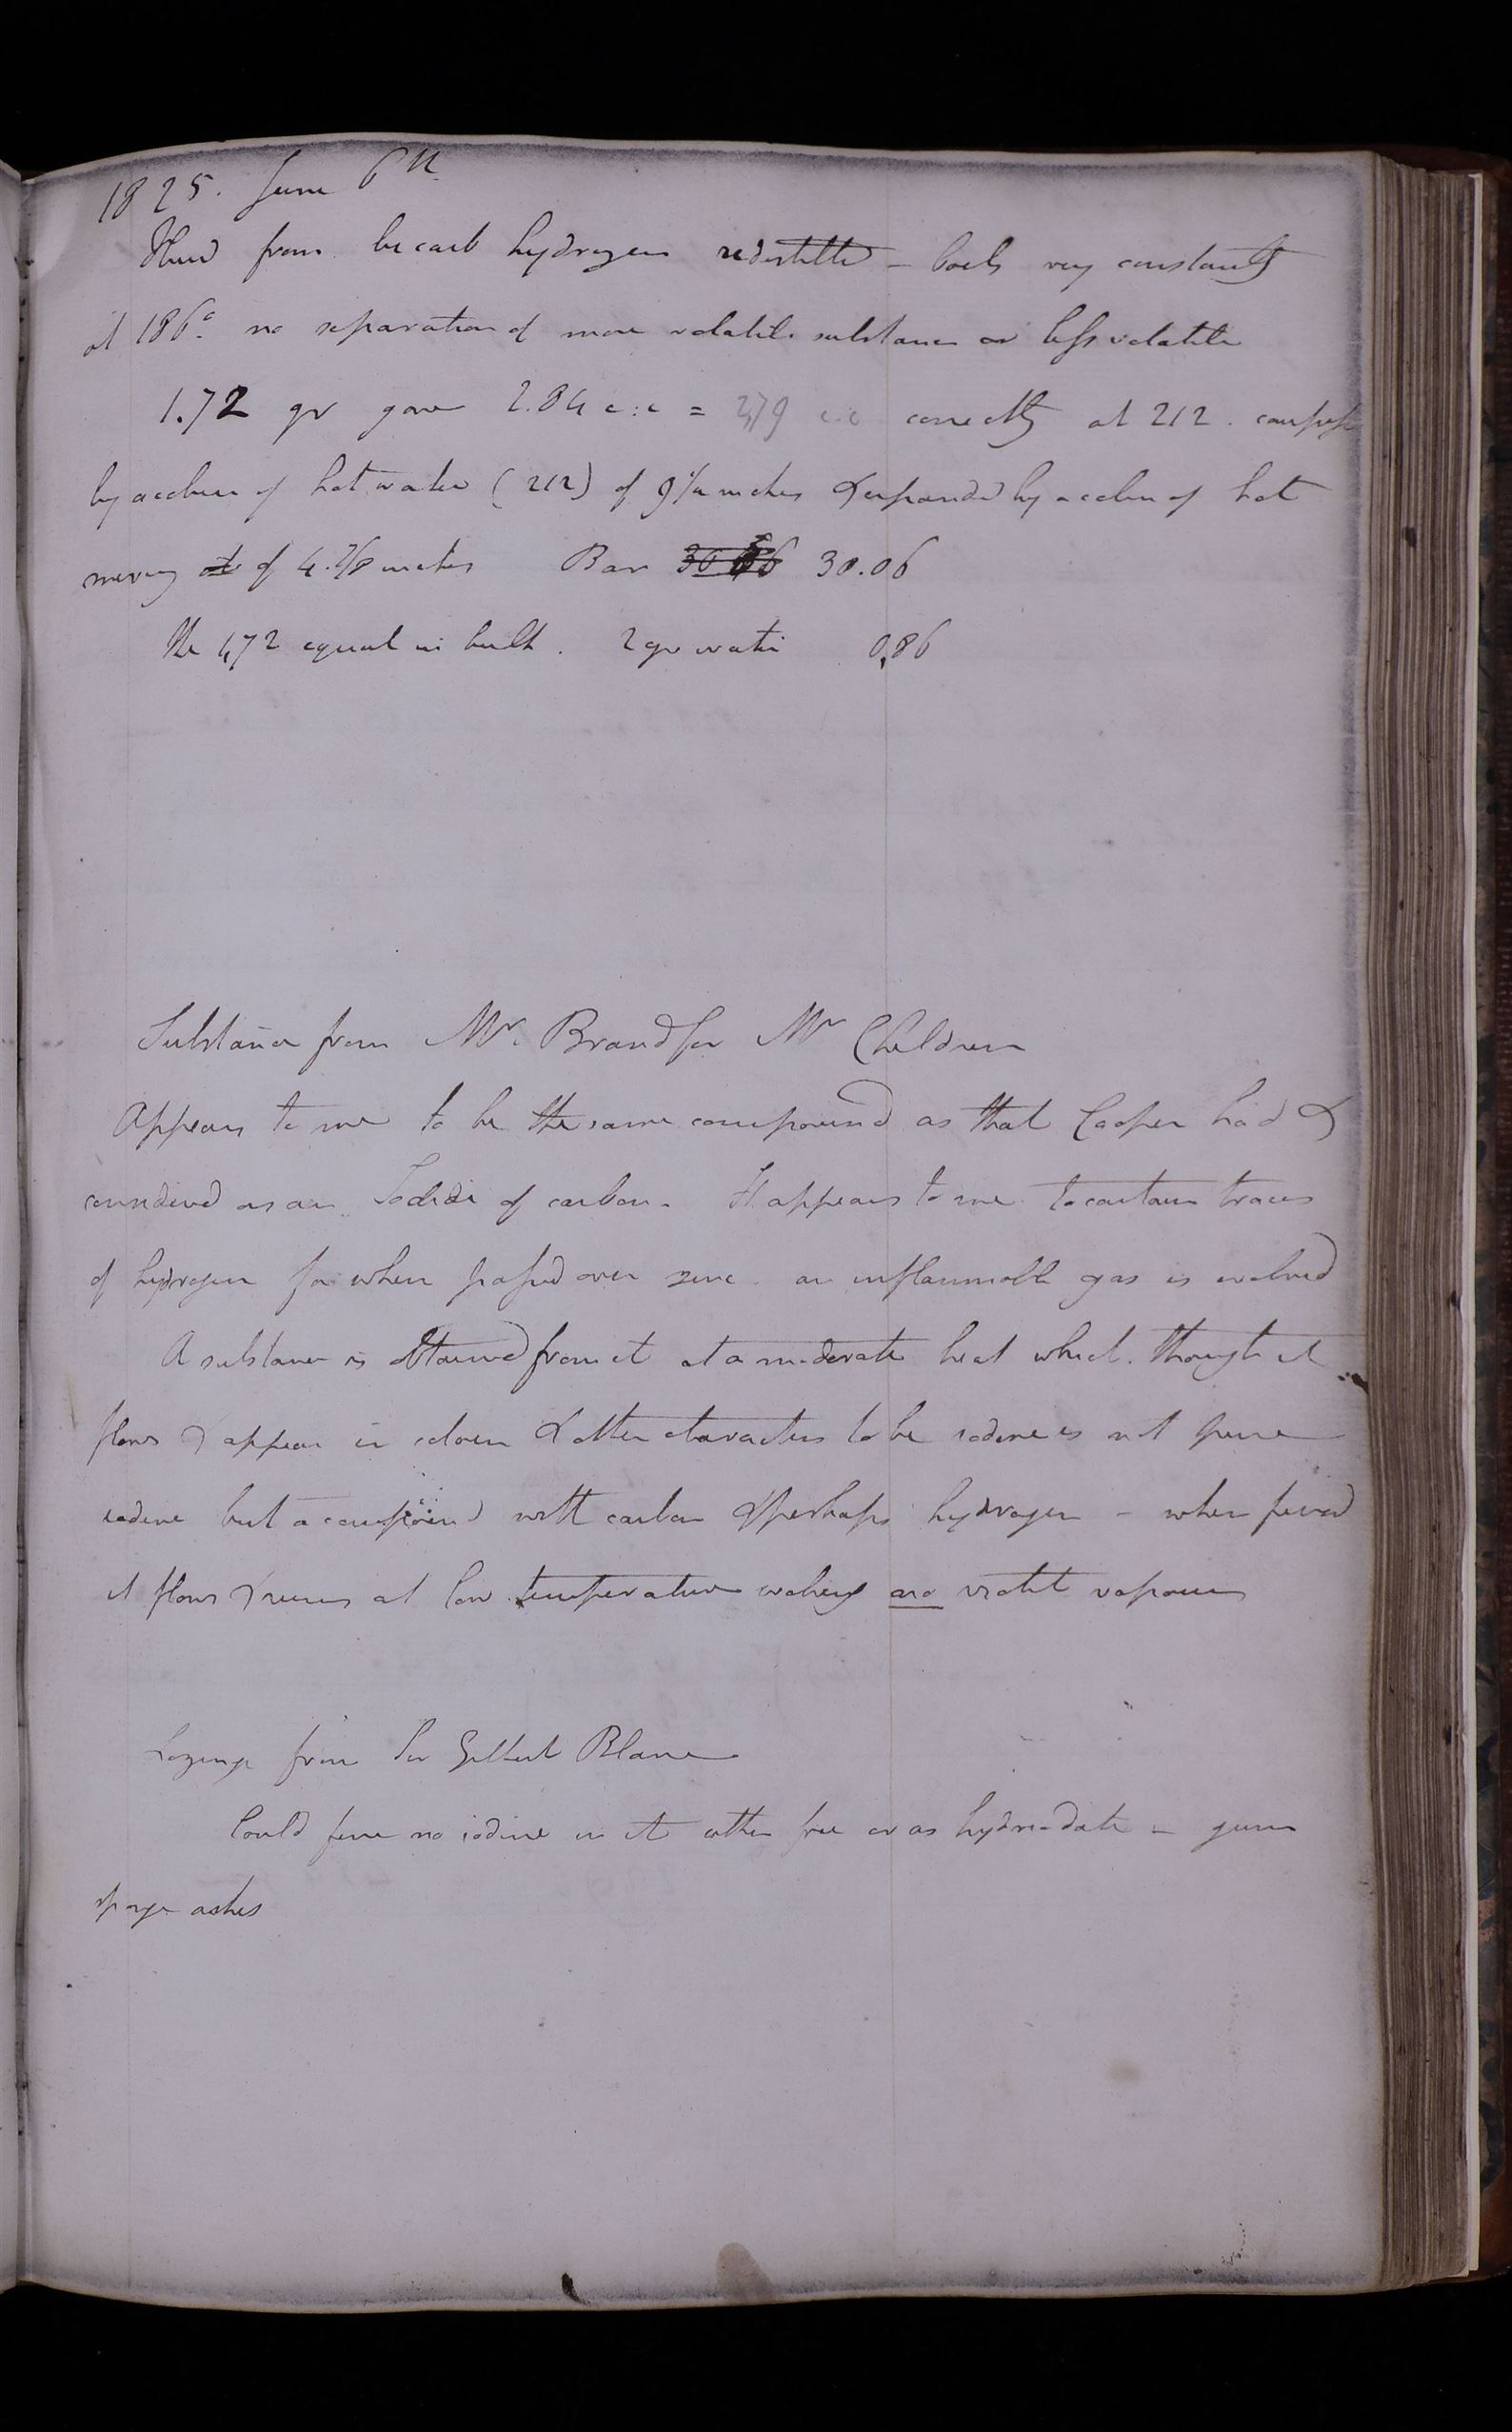 1825. June 6th
Fluid from bicarb hydrogen redistilled - boils very constantly
at 186° no separation of more volatile substance or less volatile
1.72 gr gave 2.84 c:c = 2,79 c.c correctly at 212.
by a column of hot water (212) of inches & expanded by a column of hot
mercury of 4. inches Bar 30.06
the 1,72 equal in bulk. 2 gr water 0,86
Substance from Mr. Brand for Mr Children
Appears to me to be the same compound as that Cooper had &
considered as an Iodide of carbon. It appears to me to contain traces
of hydrogen for when passed over zinc an inflammable gas is evolved
A substance is obtained from it at a moderate heat which though it
flows & appears in colour & other characters to be iodine is not pure
iodine but a compound with carbon & perhaps hydrogen - when fused
it flows & runs at low temperature evolving also violet vapours
Lozenge from Sir Gilbert Blane
Could find no iodine in it either free or as hydriodate - gum
sponge ashes